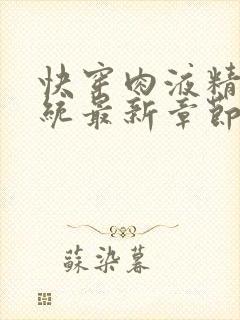 快穿肉液精
統最新章節
蘇染暮